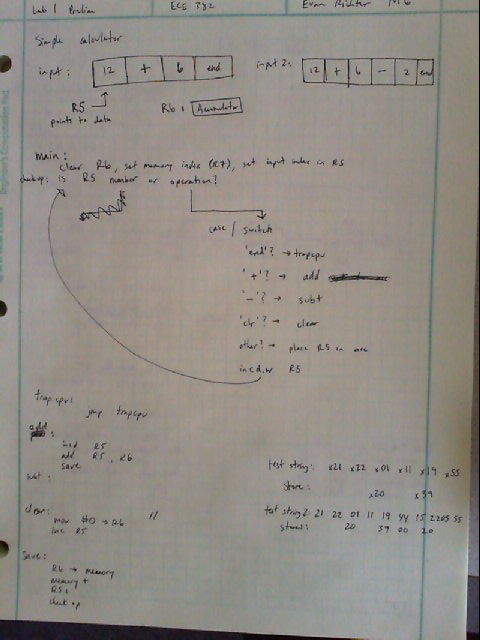 Lab 1 Prelim ECE 382 Evan Richter M6
Simple calculator
input: 12 + 6 end
input 2: 12 + 6 - 2 end
R5 → R6: Accumulator
points to data
main:
clear R6, set memory index (R7), set input index in R5
checkop: is R5 number or operation?
case / switch
'end'? → trapcpu
'+'? → add
'-'? → subt
'clr'? → clear
other? → place R5 in acc
incd.w R5
trapcpu:
jmp trapcpu
add:
incd R5
add R5, R6
save
subt: "
clear:
mov #0 → R6
inc R5
save:
R6 → memory
memory +
R5+
check op
test string: x21 x22 x01 x11 x19 x55
store: x20 x39
test string 2: 21 22 01 11 19 44 15 2205 55
stores: 20 39 00 20